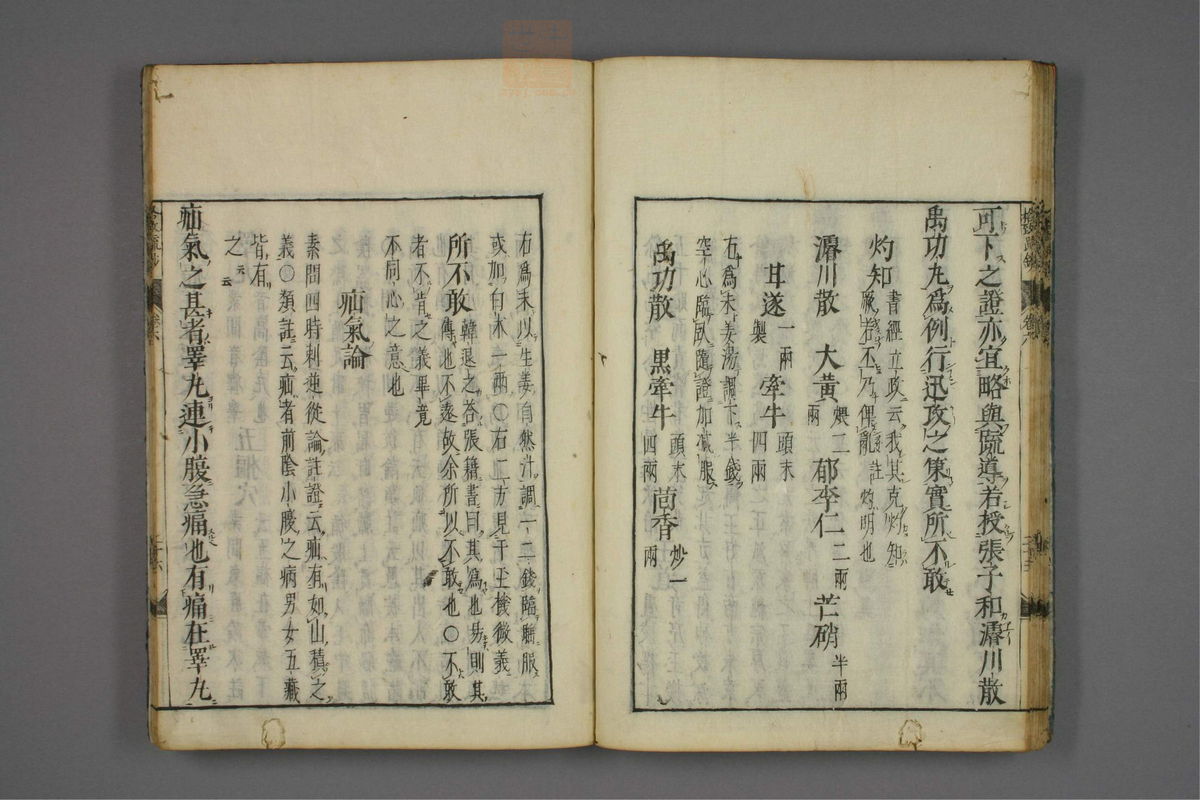 可下之證亦宜略與疏導若授張子和濬川散
禹功丸爲例行迅攻之策實所不敢
灼知 書經立政云我其克灼知
厥若不乃俾亂註灼明也
濬川散 大黃 煨二兩 郁李仁 二兩 芒硝 半兩
甘遂 一兩製 牽牛 頭末四兩
右爲末姜湯調下半錢
空心臨臥隨證加減服
禹功散 黑牽牛 頭末四兩 茴香 炒一兩
右爲末以生姜自然汁調一二錢臨睡服
或加白朮一兩〇右二方見于玉機微義
所不敢 韓退之荅張籍書曰其爲也易則其
傳也不遠故余所以不敢也〇不敢
者不肯之義畢竟
不同心之意也
疝氣論
素問四時刺逆從論註證云疝有如山積之
義〇類註云疝者前陰小腹之病男女五藏
皆有
之云云
疝氣之甚者睪丸連小腹急痛也有痛在睪丸